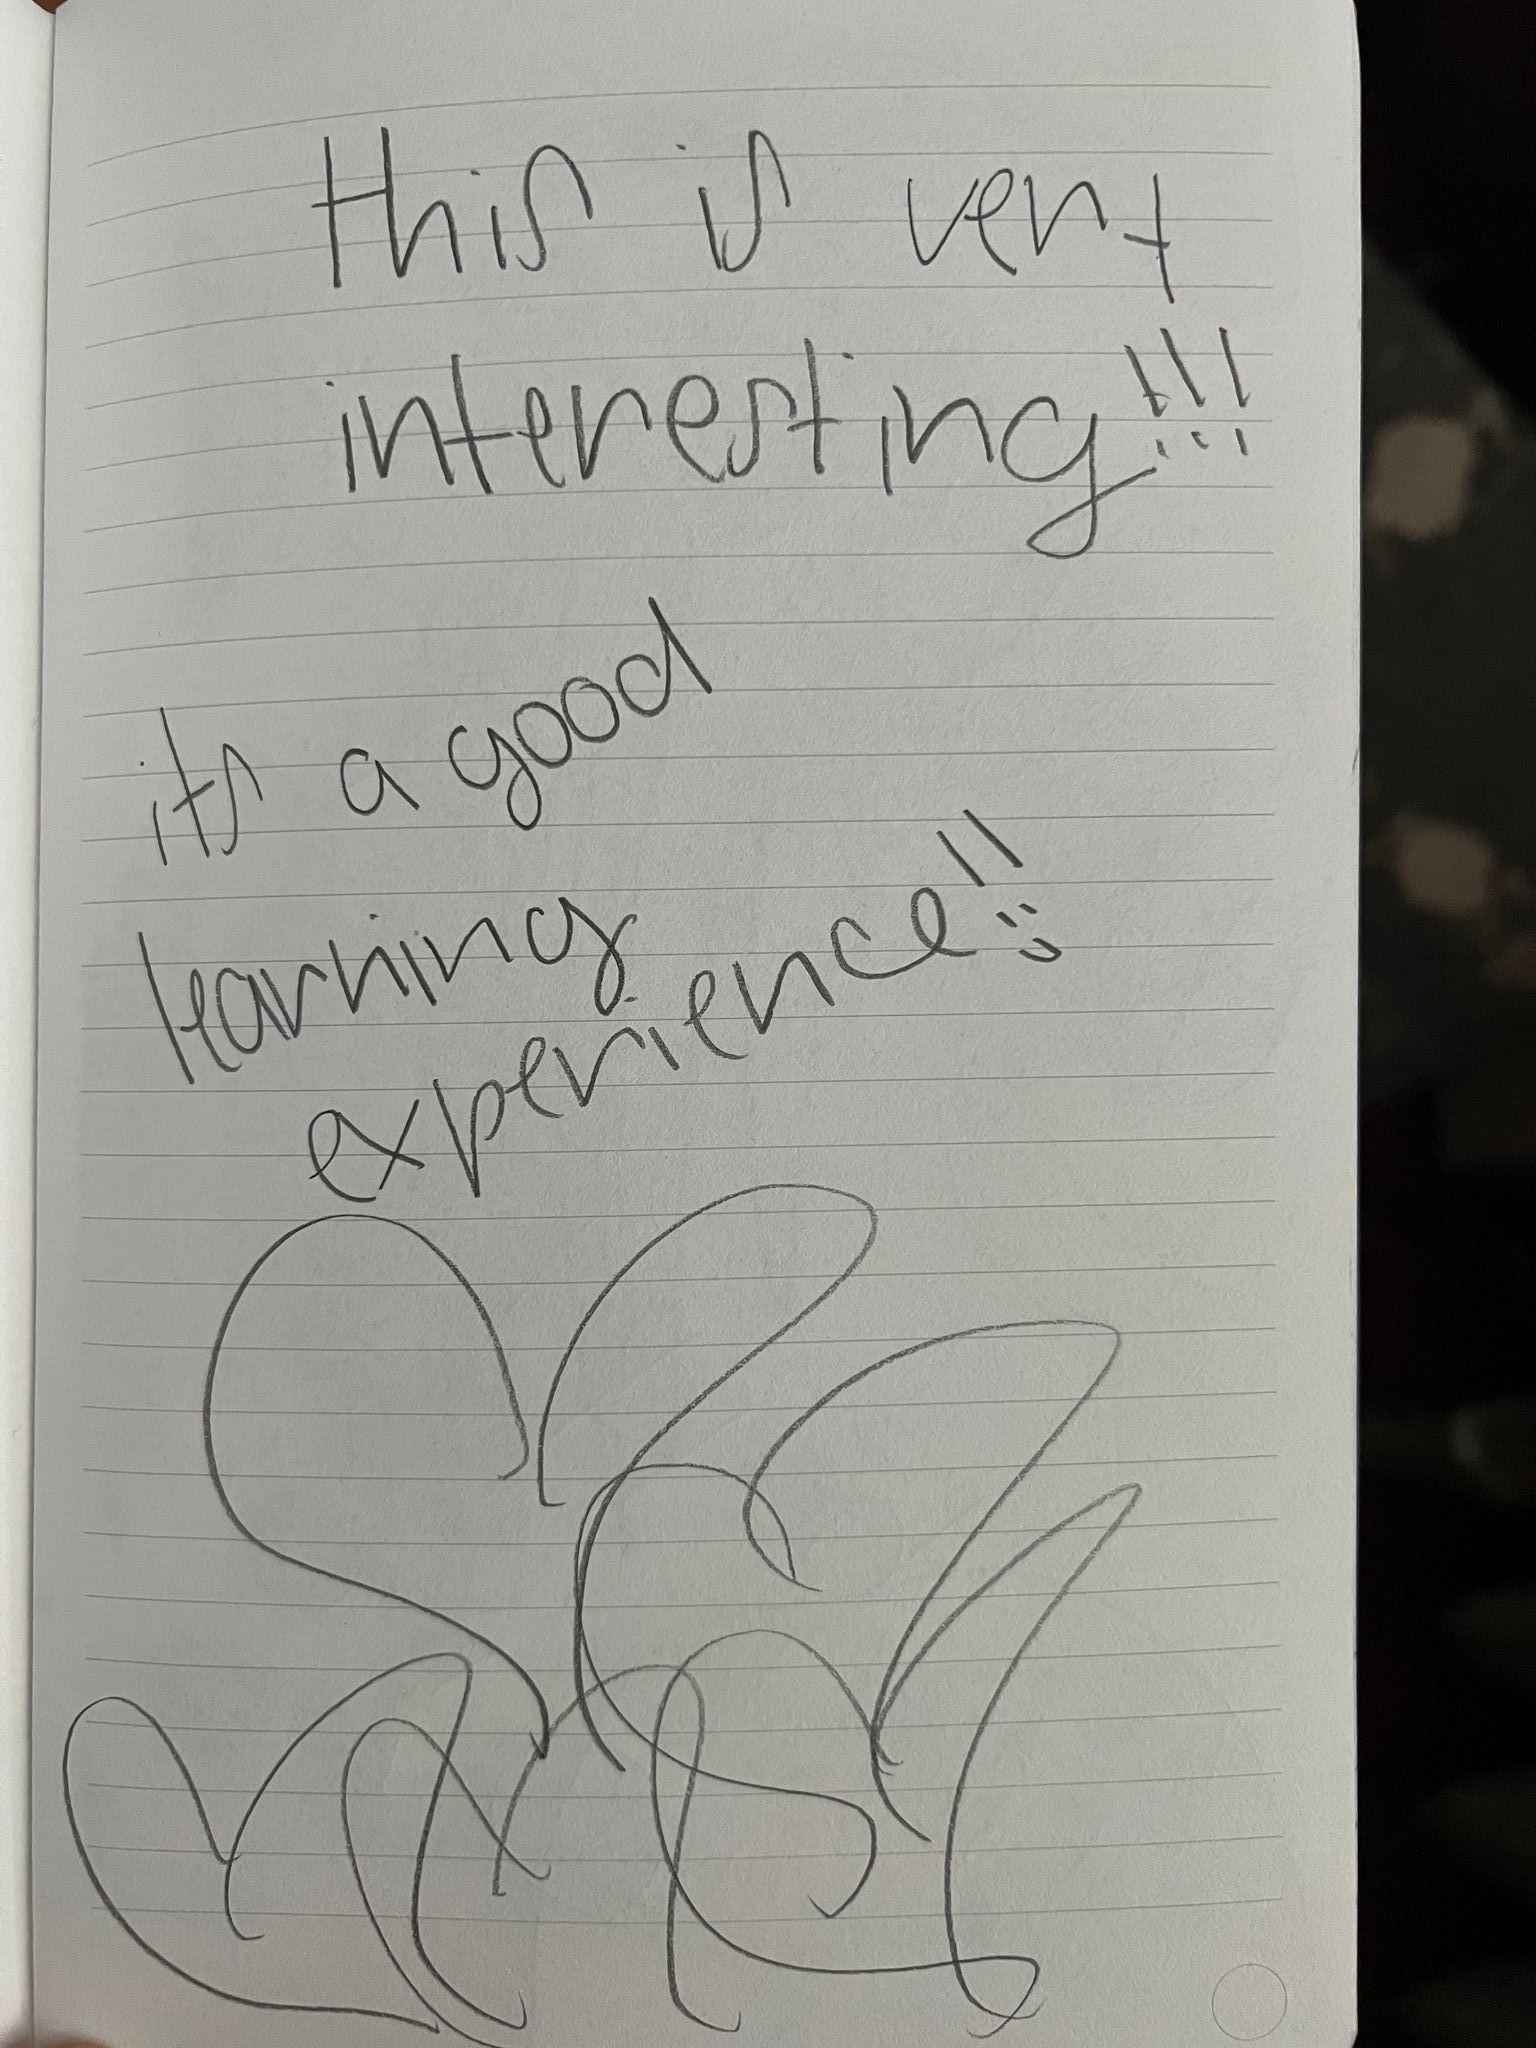 this is very
interesting!!!
its a good
learning
experience!!